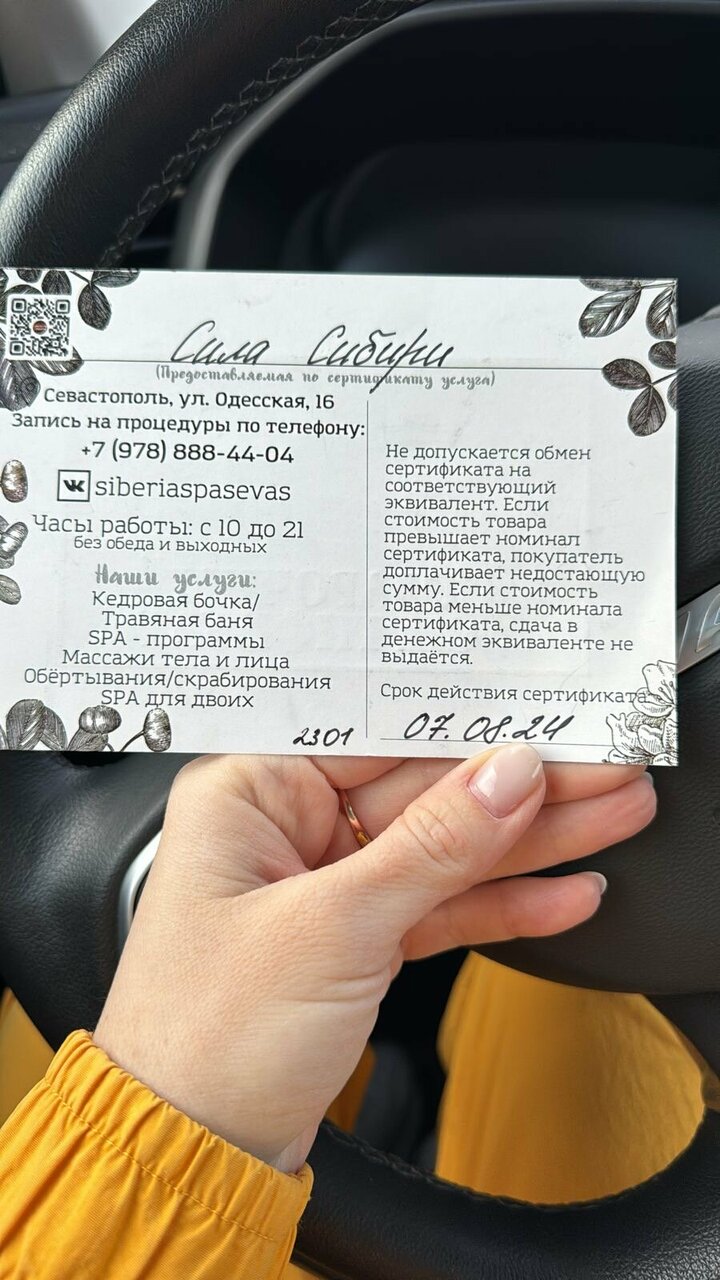 Сила Сибири
(Предоставляемая по сертификату услуга)
Севастополь, ул. Одесская, 16
Запись на процедуры по телефону:
+7 (978) 888-44-04
siberiaspasevas
Часы работы: с 10 до 21
без обеда и выходных
Наши услуги:
Кедровая бочка/
Травяная баня
SPA - программы
Массажи тела и лица
Обёртывания/скрабирования
SPA для двоих
2301
Не допускается обмен
сертификата на
соответствующий
эквивалент. Если
стоимость товара
превышает номинал
сертификата, покупатель
доплачивает недостающую
сумму. Если стоимость
товара меньше номинала
сертификата, сдача в
денежном эквиваленте не
выдаётся.
Срок действия сертификата
07.08.24